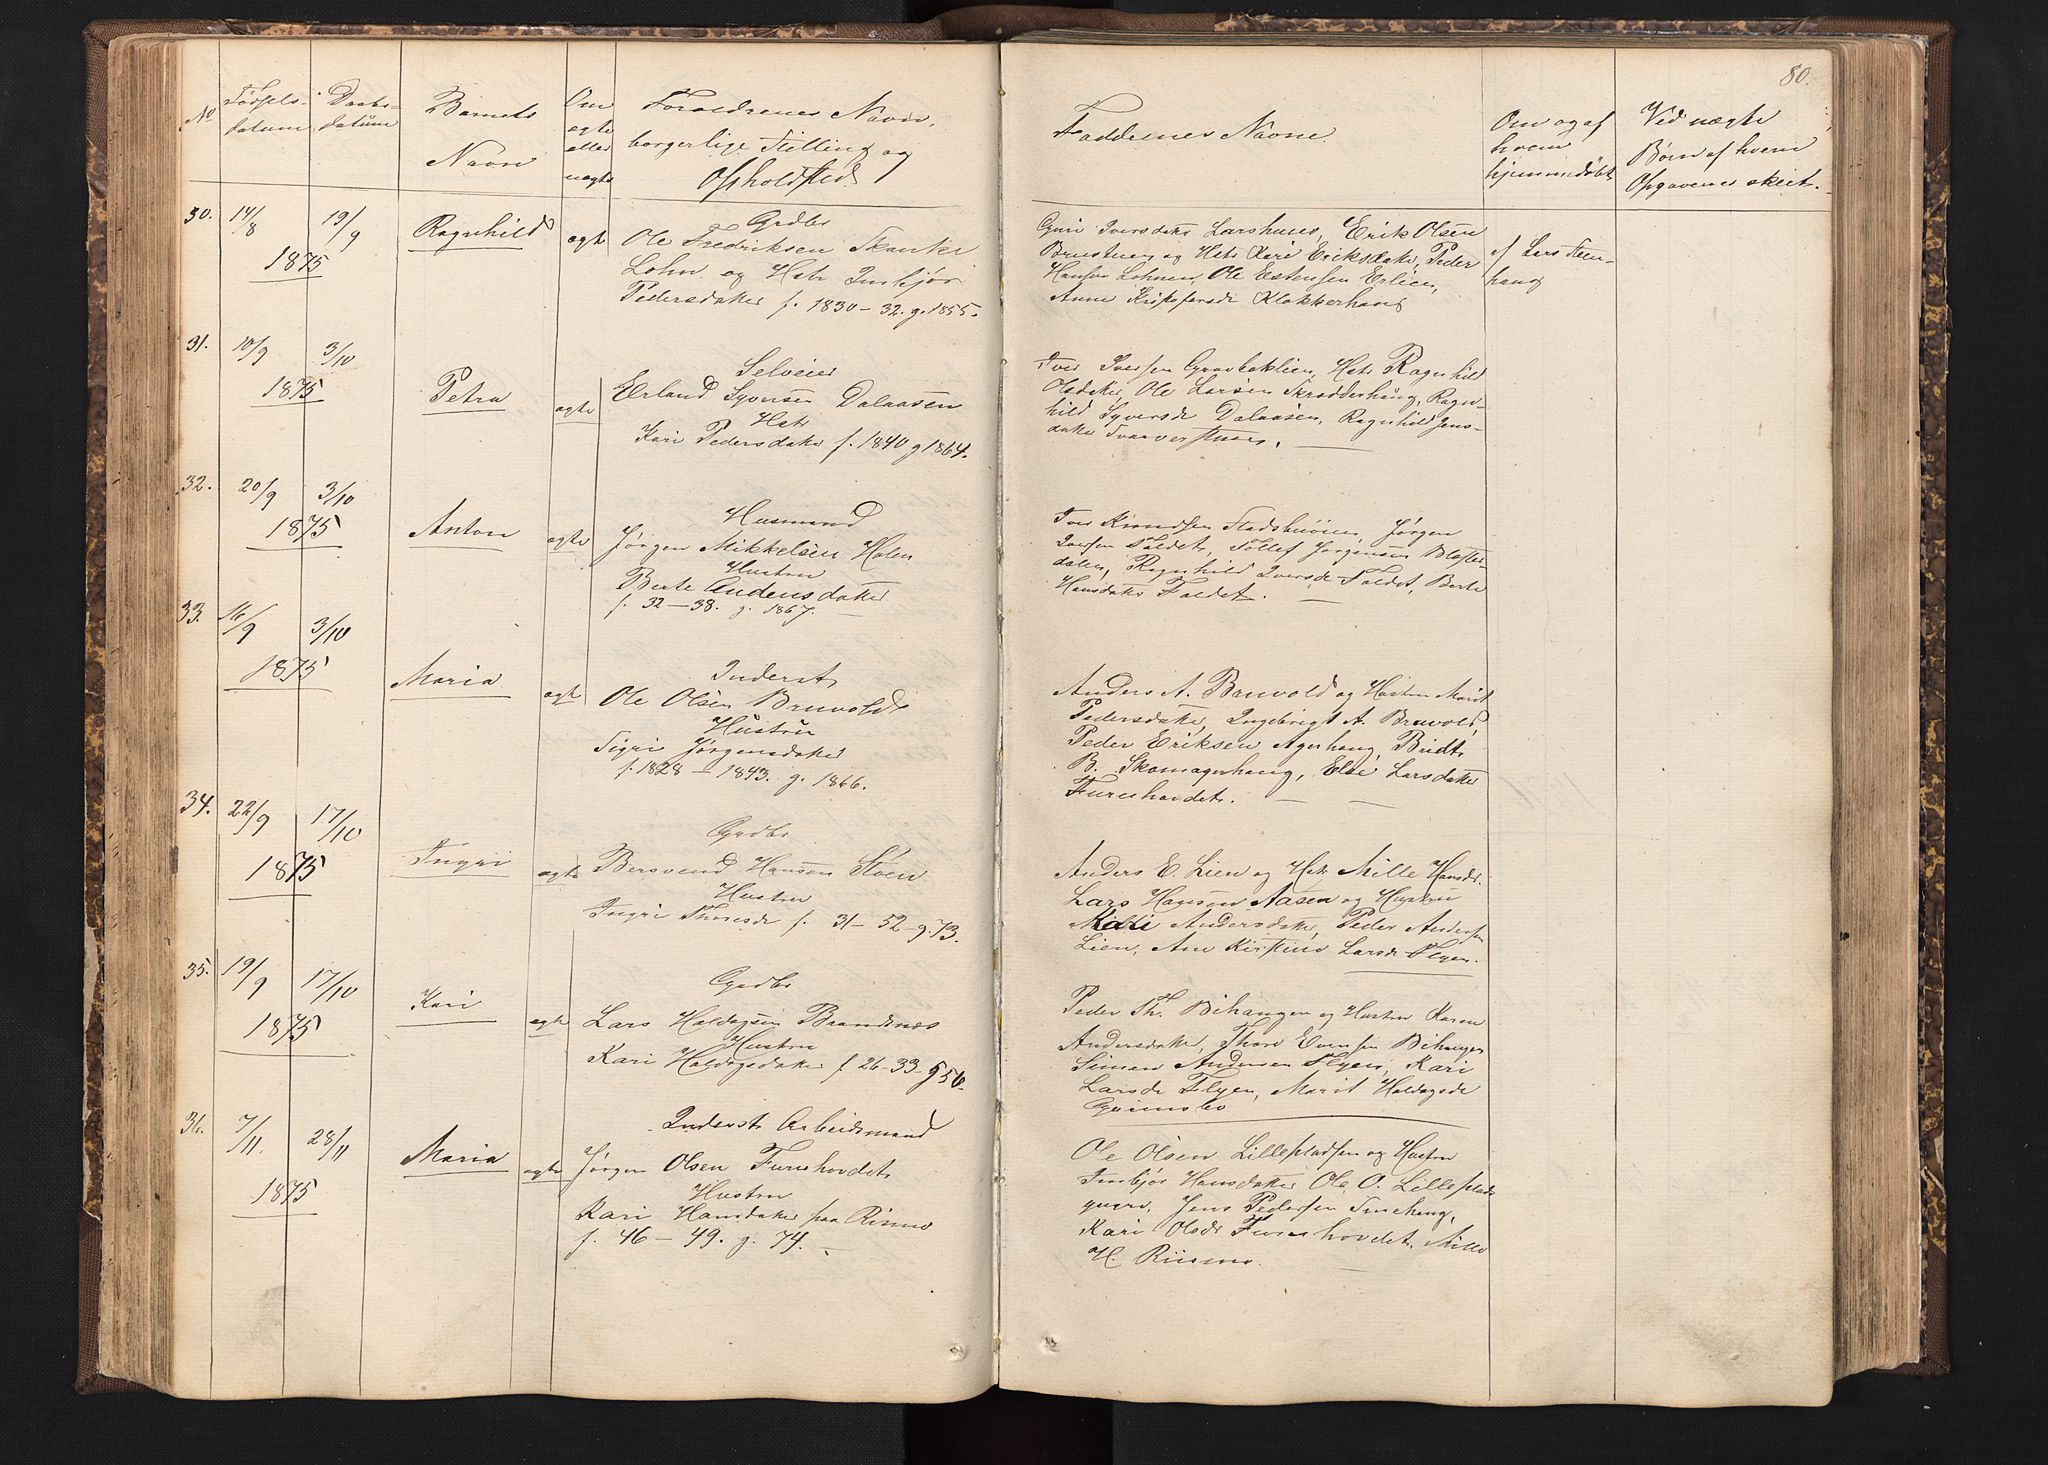 80.
No
Fødsels-
datum
Daabs-
datum
Barnets
Navn
Om
egte
eller
uegte
Forældrenes Navn,
borgerlige Stilling og
Opholdsted
Faddrenes Navne
Om og af
hvem
hjemmedøbt
Ved uægte
Børn af hvem
Opgavenes skeet.
30. 14/8 19/9
1875
Ragnhild
egte
Grdbr
Ole Fredriksen Skanke
Lohn og Hstr Imbjør
Pedersdatter f. 1830 – 32. g. 1855.
Guri Iversdatr Larshuses, Erik Olsen
og Hstr Kari Eriksdatr, Peder
Hansen Lohnen, Ole Estensen
Anne Klokkerhaug
af Lars Steen-
haug
31. 10/9 3/10
1875
Petra
egte
Selveier
Erland Syversen Dalaasen
Hstr
Kari Pedersdatr f. 1840 g 1864.
Iver Iversen Grovbeklien, Hstr Ragnhild
Olsdatr, Ole Larsen Skradderhaug, Ragn-
hild Syversdr Dalaasen, Ragnhild Jens-
datr
32. 20/9 3/10
1875
Anton
egte
Husmand
Jørgen Mikkelsen Holen
Hustru
Berte Andersdatter
f. 32 – 38. g. 1867.
Iver Knudsen Jørgen
Iversen Foldet, Tollef Jørgensen
dalen, Ragnhild Iversdr Foldet, Berte
Hansdatr Foldet. –
33. 16/9 3/10
1875
Maria
egte
Inderst
Ole Olsen Bruvold
Hustru
Sigri Jørgensdatter
f. 1828 – 1843. g. 1866.
Anders A. Bruvold og Hustru Marit
Pedersdatr, Ingebrigt A. Bruvold,
Peder Eriksen Agerhaug,
B. Skomagerhaug, Else Larsdatr
Furuhovdet. – –
34. 22/9 17/10
1875
Ingri
egte
Grdbr
Bersvend Hansen Støen
Hustru
Ingri Thoresdr f. 31 – 52 – g. 73.
Anders E. Lien og Hstr Mille Hansdr.
Lars Hansen Aasen og Hustru
Mari Andersdatr, Peder Andersen
Lien, Ane Kirstine Larsdr Flyen.
35. 19/9 17/10
1875
Kari
egte
Grdbr
Lars Haldogsen Brandsnes
Hustru
Kari Haldogsdatter f. 26-33-g 56.
Peder Th. Bihaugen og Hustru Karen
Andersdatr, Thore Evensen Bihaugen
Simen Andersen Flyen, Kari
Larsdr Flyen, Marit Haldogsdr
Grimsbo
36. 7/11 28/11
1875
Maria
egte
Inderst Arbeidsmand
Jørgen Olsen Furuhovdet
Hustru
Kari Hansdatter paa Rismo
f. 46 – 49. g. 74. –
Ole Olsen Lillepladsen og Hustru
Imbjør Hansdatr, Ole O. Lilleplads
Jens Pedersen
Kari Olsdr Furuhovdet, Mille
H. Riismo.